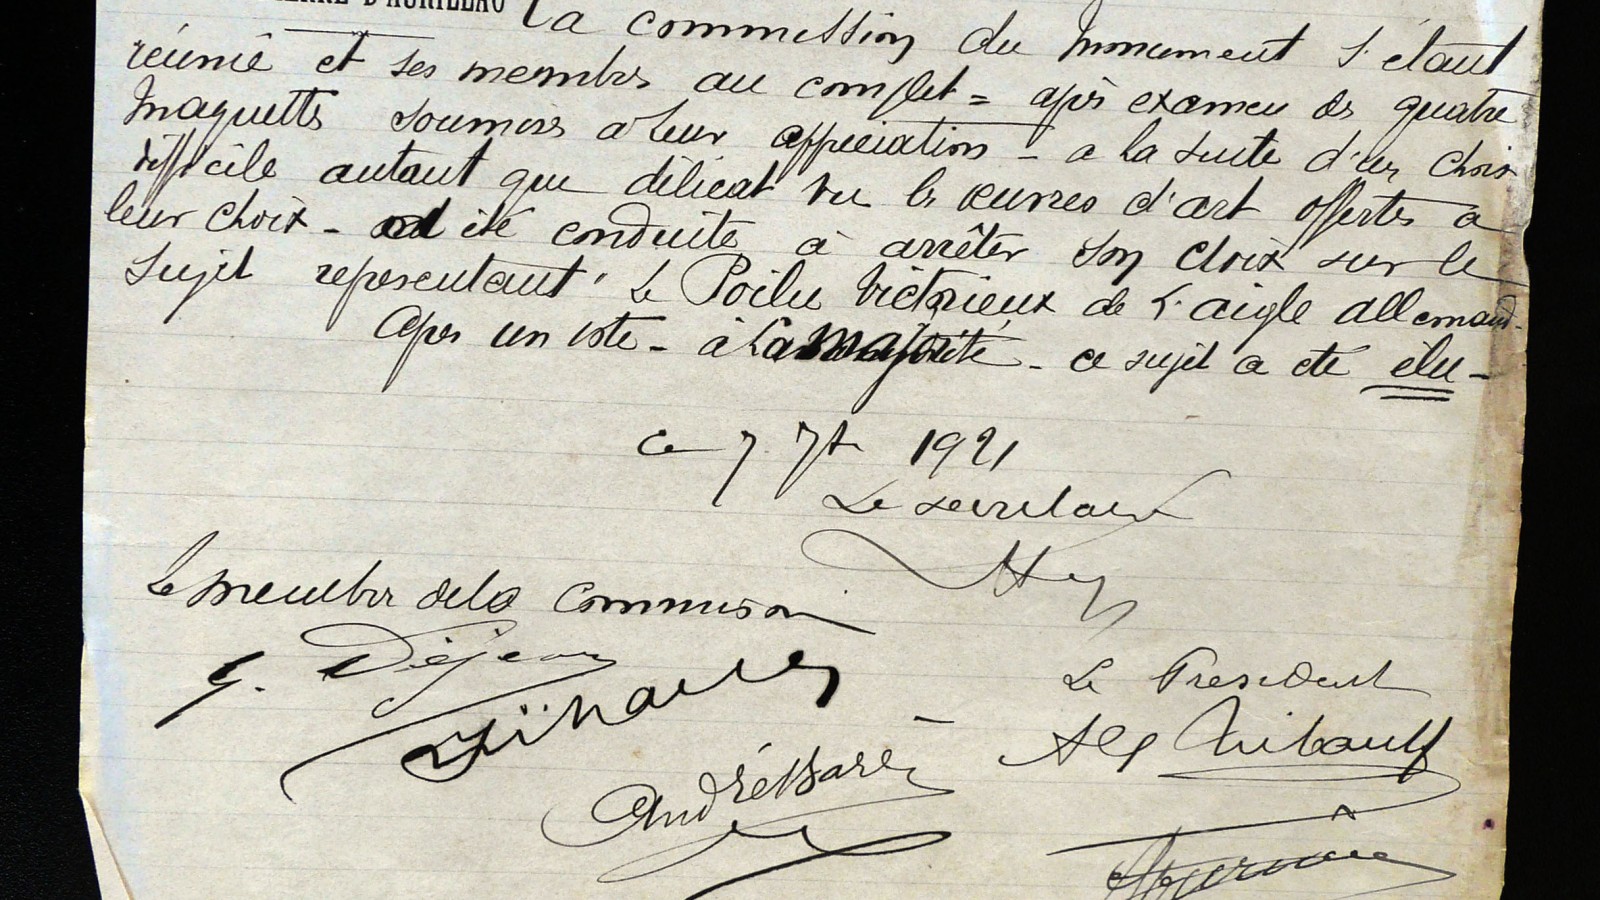 PIERRE D'AURILLAC
La commission du Monument s'étant
réunie et ses membres au complet = après examen des quatre
Maquettes soumises à leur appréciation - a la suite d'un choix
difficile autant que délicat vu les œuvres d'art offertes à
leur choix - a été conduite à arrêter son choix sur le
sujet représentant "Le Poilu victorieux de l'aigle allemand -
Après un vote - à la majorité - ce sujet a été élu -
Ce 7 7bre 1921
Le secrétaire
Le membres de la commission
G. Dejean
Le President
Alf Thibault
André